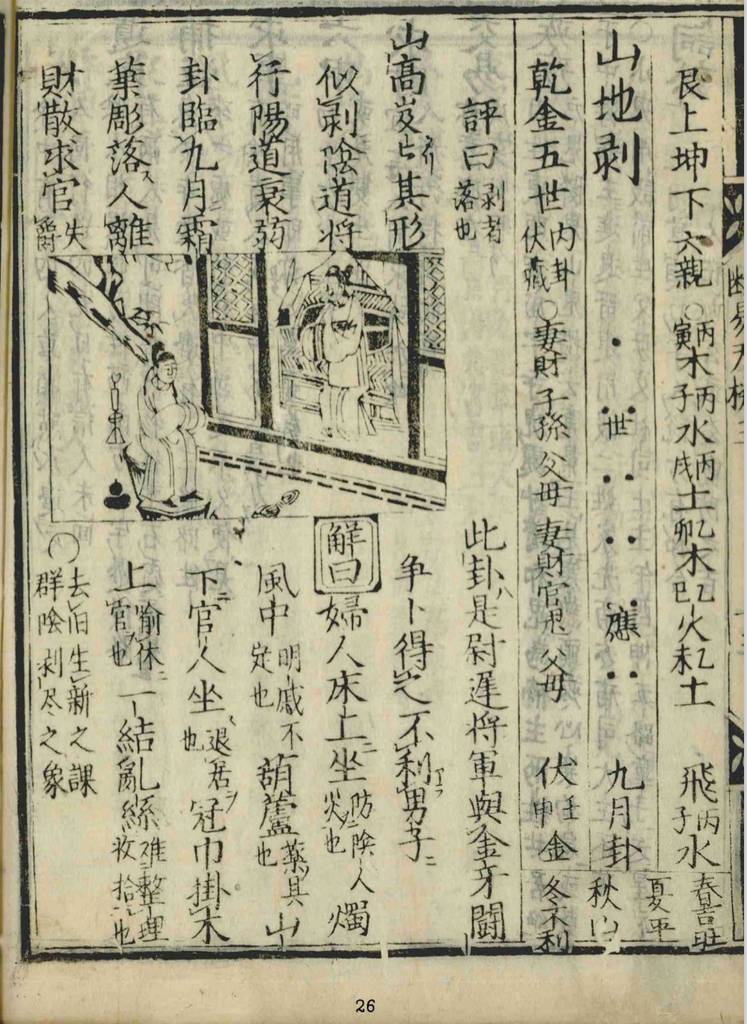 艮上坤下六親○丙寅木丙子水丙戌土乙卯木乙巳火乙未土 飛丙子水 春吉旺
夏平
山地剥 世 應 九月卦 秋凶
乾金五世内卦伏藏○妻財子孫父母妻財官鬼父母 伏壬申金 冬不利
評曰剥者落也
山高岌岌其形
似剥陰道將
行陽道衰弱
卦臨九月霜
葉彫落人離
財散求官失爵
此卦是尉遲將軍與金牙鬪
争卜得之不利男子
解曰婦人床上坐防陰人災也燭
風中明滅不定也葫蘆藥具也山
下官人坐退居也冠巾掛木
上休官也一結亂絲難整理收拾也
○去旧生新之課
群陰剥尽之象
26